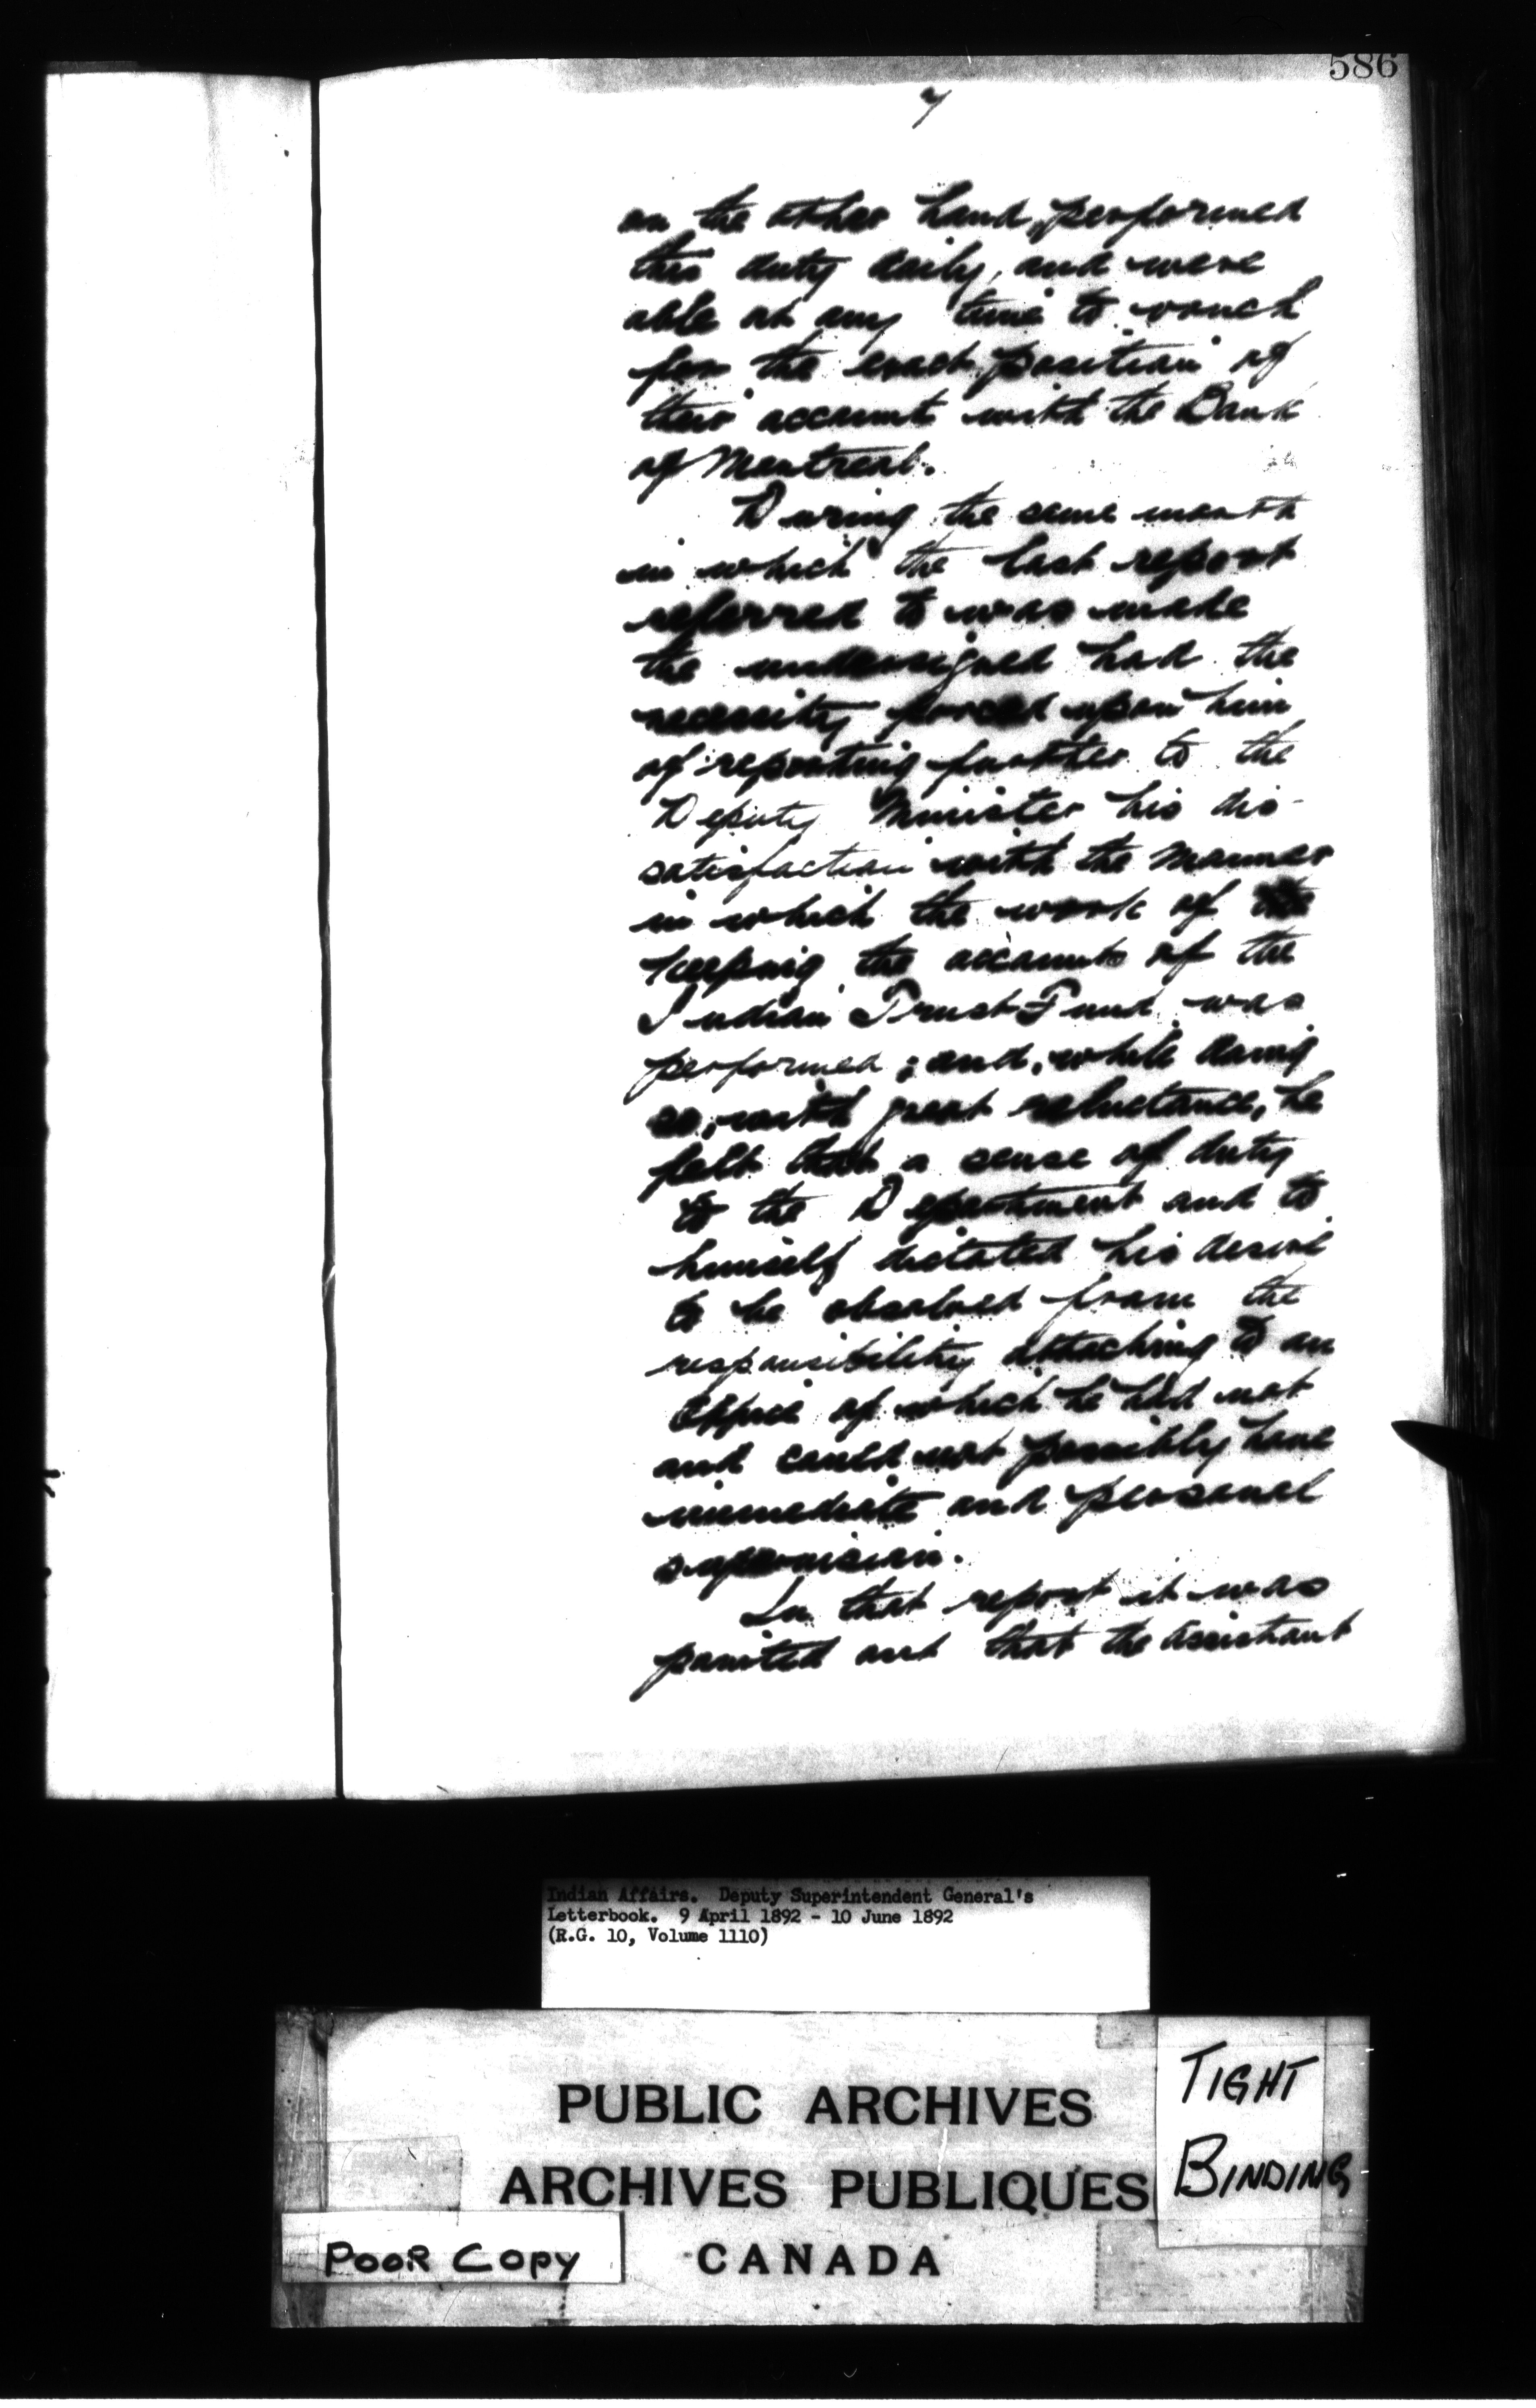 586
7
on the other hand, performed
this duty daily, and were
able at any time to vouch
for the exact position of
their account with the Bank
of Montreal.
During the same month
in which the last report
referred to was made
the undersigned had the
necessity forced upon him
of reporting further to the
Deputy Minister his dis-
satisfaction with the manner
in which the work of the
keeping the accounts of the
Indian Trust Fund was
performed; and, while doing
so, with great reluctance, he
felt that a sense of duty
to the Department and to
himself dictated his desire
to be absolved from the
responsibility attaching to an
Office of which he had not
and could not possibly have
immediate and personal
supervision.
In that report it was
pointed out that the Assistant
Indian Affairs. Deputy Superintendent General's
Letterbook. 9 April 1892 - 10 June 1892
(R.G. 10, Volume 1110)
PUBLIC ARCHIVES
ARCHIVES PUBLIQUES
CANADA
TIGHT
BINDING
POOR COPY